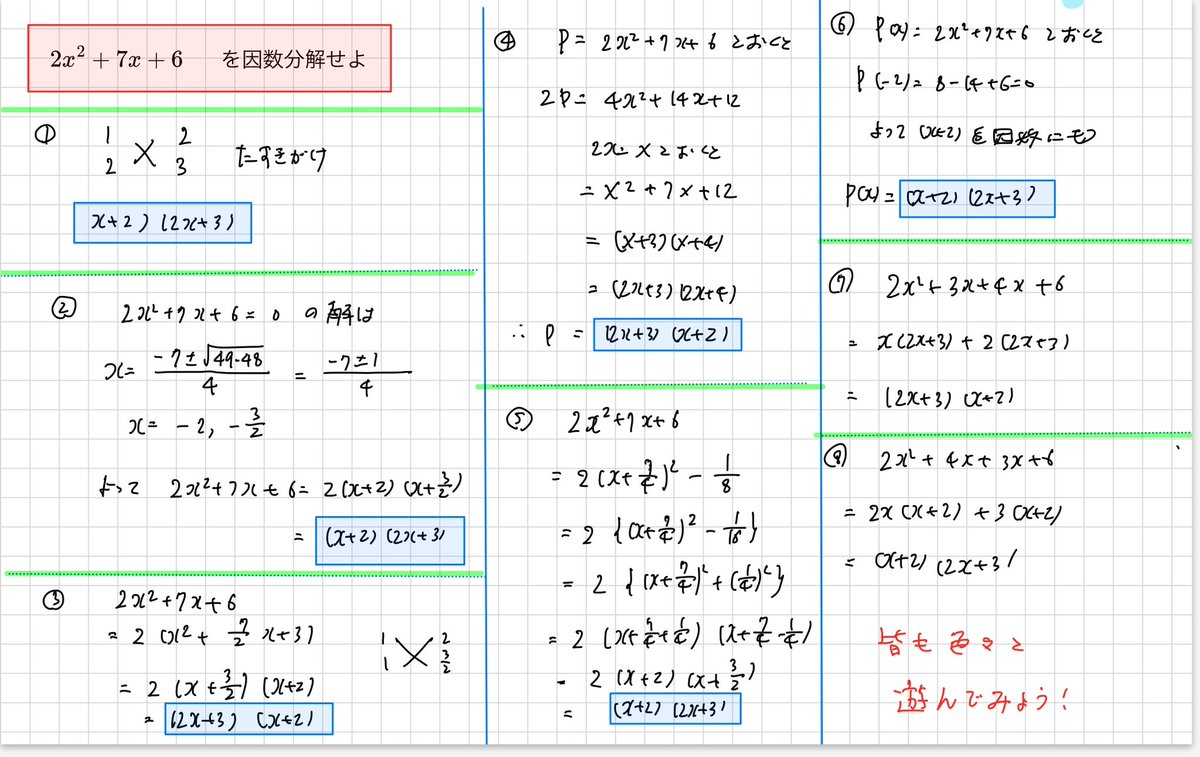 2x² + 7x + 6 を因数分解せよ
①
1 2
2 3 たすきがけ
x+2) (2x+3)
②
2x²+7x+6=0 の解は
x= -7±√49-48 / 4 = -7±1 / 4
x= -2, -3/2
よって 2x²+7x+6= 2(x+2)(x+3/2)
= (x+2)(2x+3)
③ 2x²+7x+6
= 2(x²+ 7/2 x+3)
1 2
1 3/2
= 2(x+3/2)(x+2)
= (2x+3)(x+2)
④ P= 2x²+7x+6 とおくと
2P= 4x²+14x+12
2x=X とおくと
= X²+7X+12
= (X+3)(X+4)
= (2x+3)(2x+4)
∴ P = (2x+3)(x+2)
⑤ 2x²+7x+6
= 2(x+7/4)² - 1/8
= 2{(x+7/4)² - 1/16}
= 2{(x+7/4)²+(1/4)²}
= 2(x+7/4+1/4)(x+7/4-1/4)
= 2(x+2)(x+3/2)
= (x+2)(2x+3)
⑥ P(x)= 2x²+7x+6 とおくと
P(-2)= 8-14+6=0
よって (x+2) を因数にもつ
P(x)= (x+2)(2x+3)
⑦ 2x²+3x+4x+6
= x(2x+3)+2(2x+3)
= (2x+3)(x+2)
⑧ 2x²+4x+3x+6
= 2x(x+2)+3(x+2)
= (x+2)(2x+3)
皆も色々と
遊んでみよう!